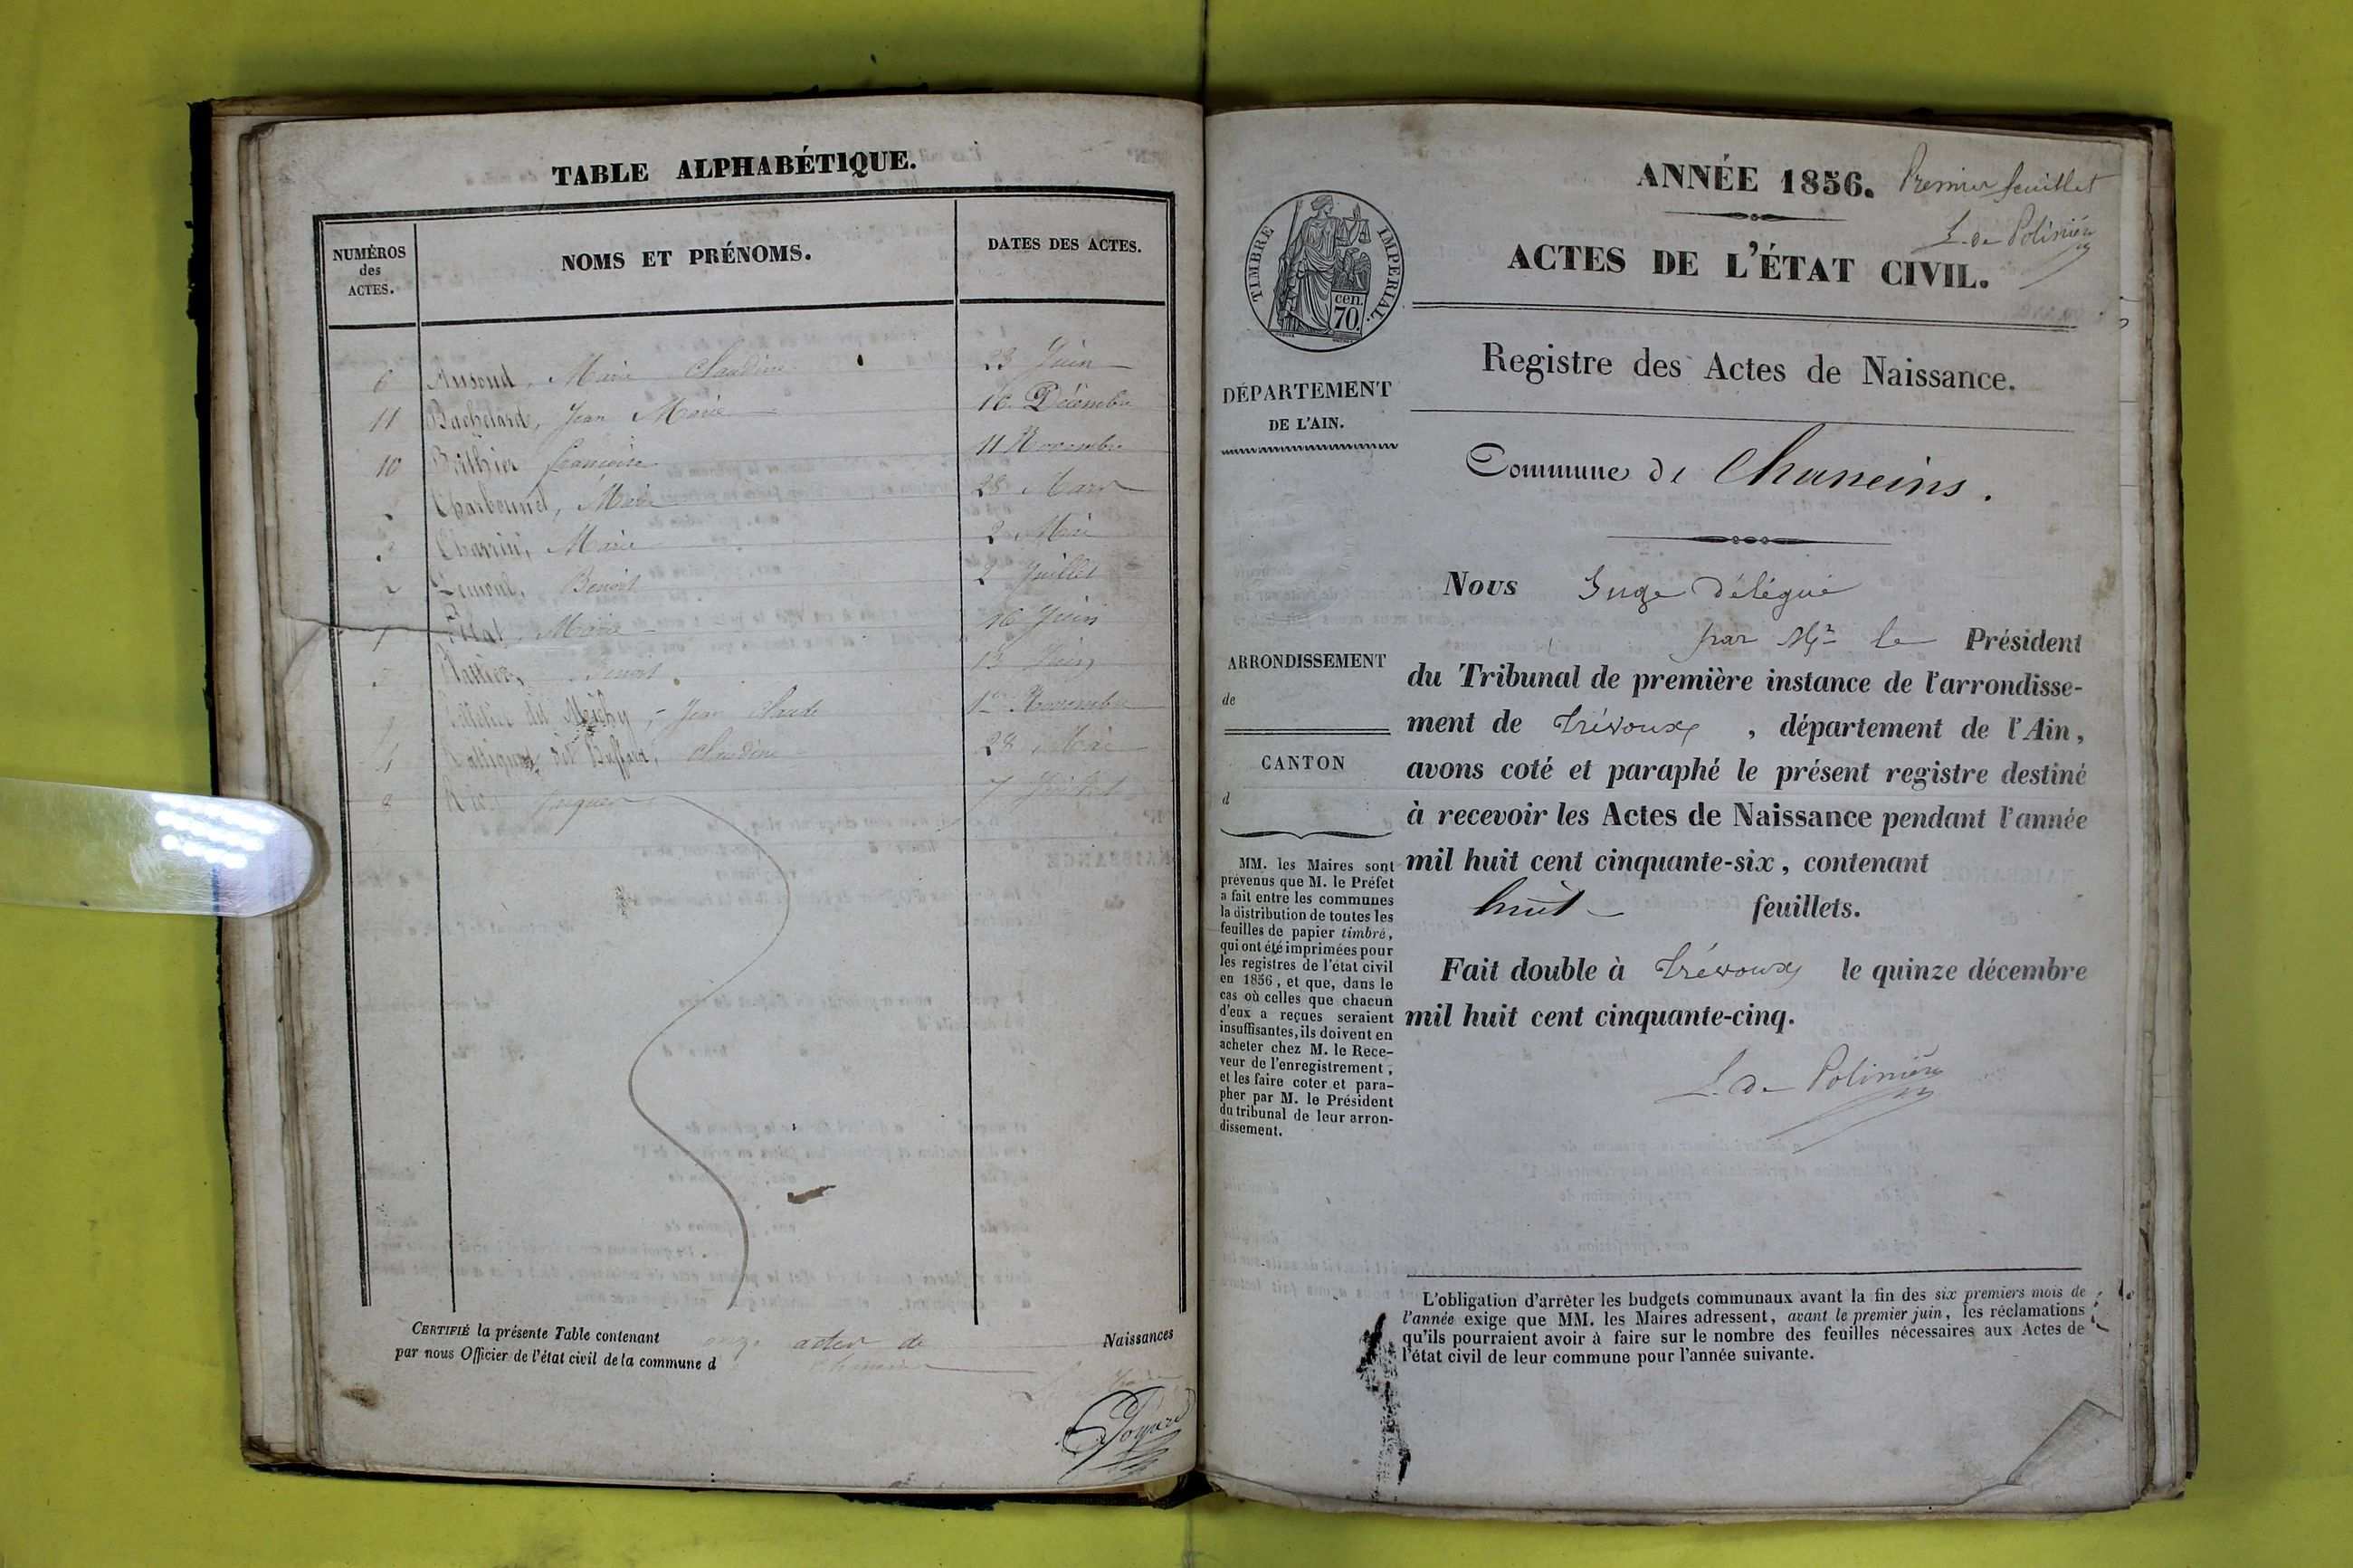 TABLE ALPHABÉTIQUE.
NUMÉROS
des
ACTES.
NOMS ET PRÉNOMS.
DATES DES ACTES.
6 Marie Claudine 23 Juin
11 Bachelard, Jean Marie 10 Décembre
10 Françoise 11 Novembre
Charbonnel, Marie 28 Mars
Marie 2 Mai
Benoit 2 Juillet
Marie 16 Juin
Benoit 13 Juin
dit Jean Claude 1er Novembre
dit Claudine 28 Mai
8 Jacques 7
CERTIFIÉ la présente Table contenant onze actes de Naissances
par nous Officier de l'état civil de la commune d
ANNÉE 1856. Premier feuillet
L. de Polinière
ACTES DE L'ÉTAT CIVIL.
TIMBRE IMPERIAL.
cen.
70
Registre des Actes de Naissance.
DÉPARTEMENT
DE L'AIN.
Commune de Chaneins.
ARRONDISSEMENT
de
CANTON
d
MM. les Maires sont
prévenus que M. le Préfet
a fait entre les communes
la distribution de toutes les
feuilles de papier timbré,
qui ont été imprimées pour
les registres de l'état civil
en 1856, et que, dans le
cas où celles que chacun
d'eux a reçues seraient
insuffisantes, ils doivent en
acheter chez M. le Rece-
veur de l'enregistrement,
et les faire coter et para-
pher par M. le Président
du tribunal de leur arron-
dissement.
Nous Juge Délégué
par Mr le Président
du Tribunal de première instance de l'arrondisse-
ment de Trévoux, département de l'Ain,
avons coté et paraphé le présent registre destiné
à recevoir les Actes de Naissance pendant l'année
mil huit cent cinquante-six, contenant
huit feuillets.
Fait double à Trévoux le quinze décembre
mil huit cent cinquante-cinq.
L. de Polinière
L'obligation d'arrêter les budgets communaux avant la fin des six premiers mois de
l'année exige que MM. les Maires adressent, avant le premier juin, les réclamations
qu'ils pourraient avoir à faire sur le nombre des feuilles nécessaires aux Actes de
l'état civil de leur commune pour l'année suivante.